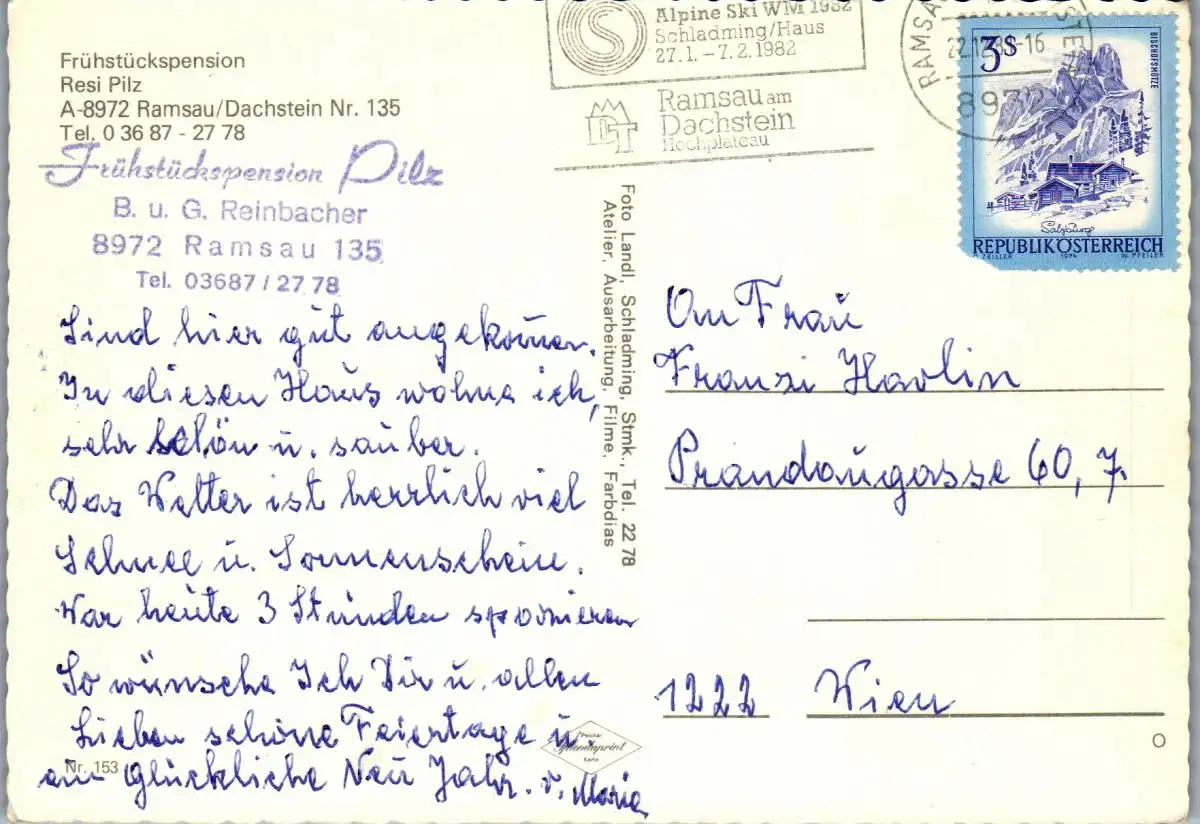 Frühstückspension
Resi Pilz
A-8972 Ramsau/Dachstein Nr. 135
Tel. 0 36 87 - 27 78
Frühstückspension Pilz
B. u. G. Reinbacher
8972 Ramsau 135
Tel. 03687 / 27 78
Sind hier gut angekom̅en.
In diesen Haus wohne ich,
sehr schön u. sauber.
Das Wetter ist herrlich viel
Schnee u. Sonnenschein.
War heute 3 Stunden spazieren
So wünsche Ich Dir u. allen
Lieben schöne Feiertage u.
ein Glückliche Neu Jahr. v. Maria
Nr. 153
Foto Landl, Schladming, Stmk., Tel. 22 78
Atelier, Ausarbeitung, Filme, Farbdias
Karte
Alpine Ski WM 1982
Schladming/Haus
27.1. - 7.2.1982
Ramsau am
Dachstein
Hochplateau
RAMSA
22.12.8 -16
8972
3S
BISCHOFSMÜTZE
Salzburg
REPUBLIK ÖSTERREICH
O. ZEILLER 1974 W. PFEILER
An Frau
Franzi Havlin
Prandaugasse 60, 7.
1222 Wien